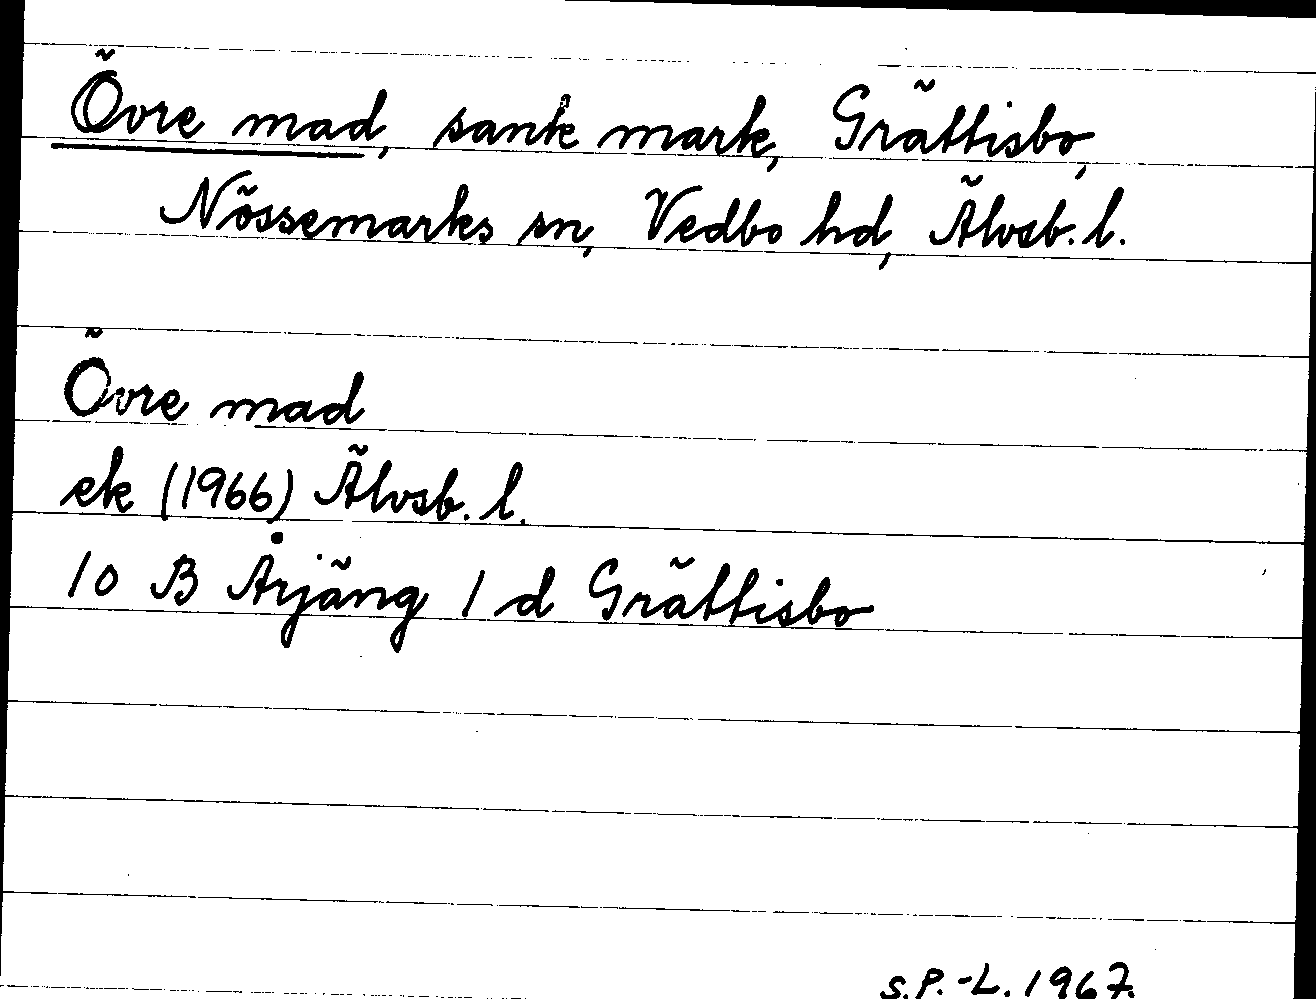 Övre mad, sank mark, Grättisbo,
Nössemarks sn, Vedbo hd, Älvsb. l.
Övre mad
ek (1966) Älvsb. l.
10 B Årjäng 1 d Grättisbo
S.P.-L. 1967.